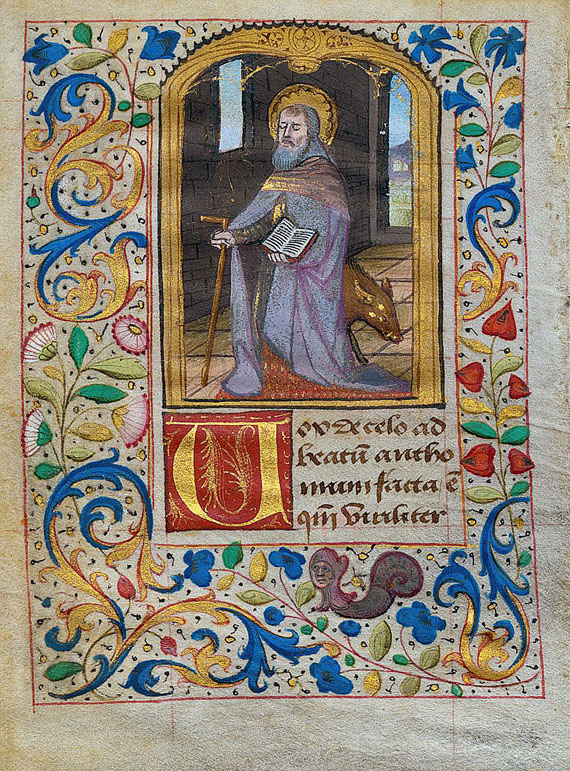 Uox de celo ad
beatū antho
nium facta ē
qm̄ viriliter